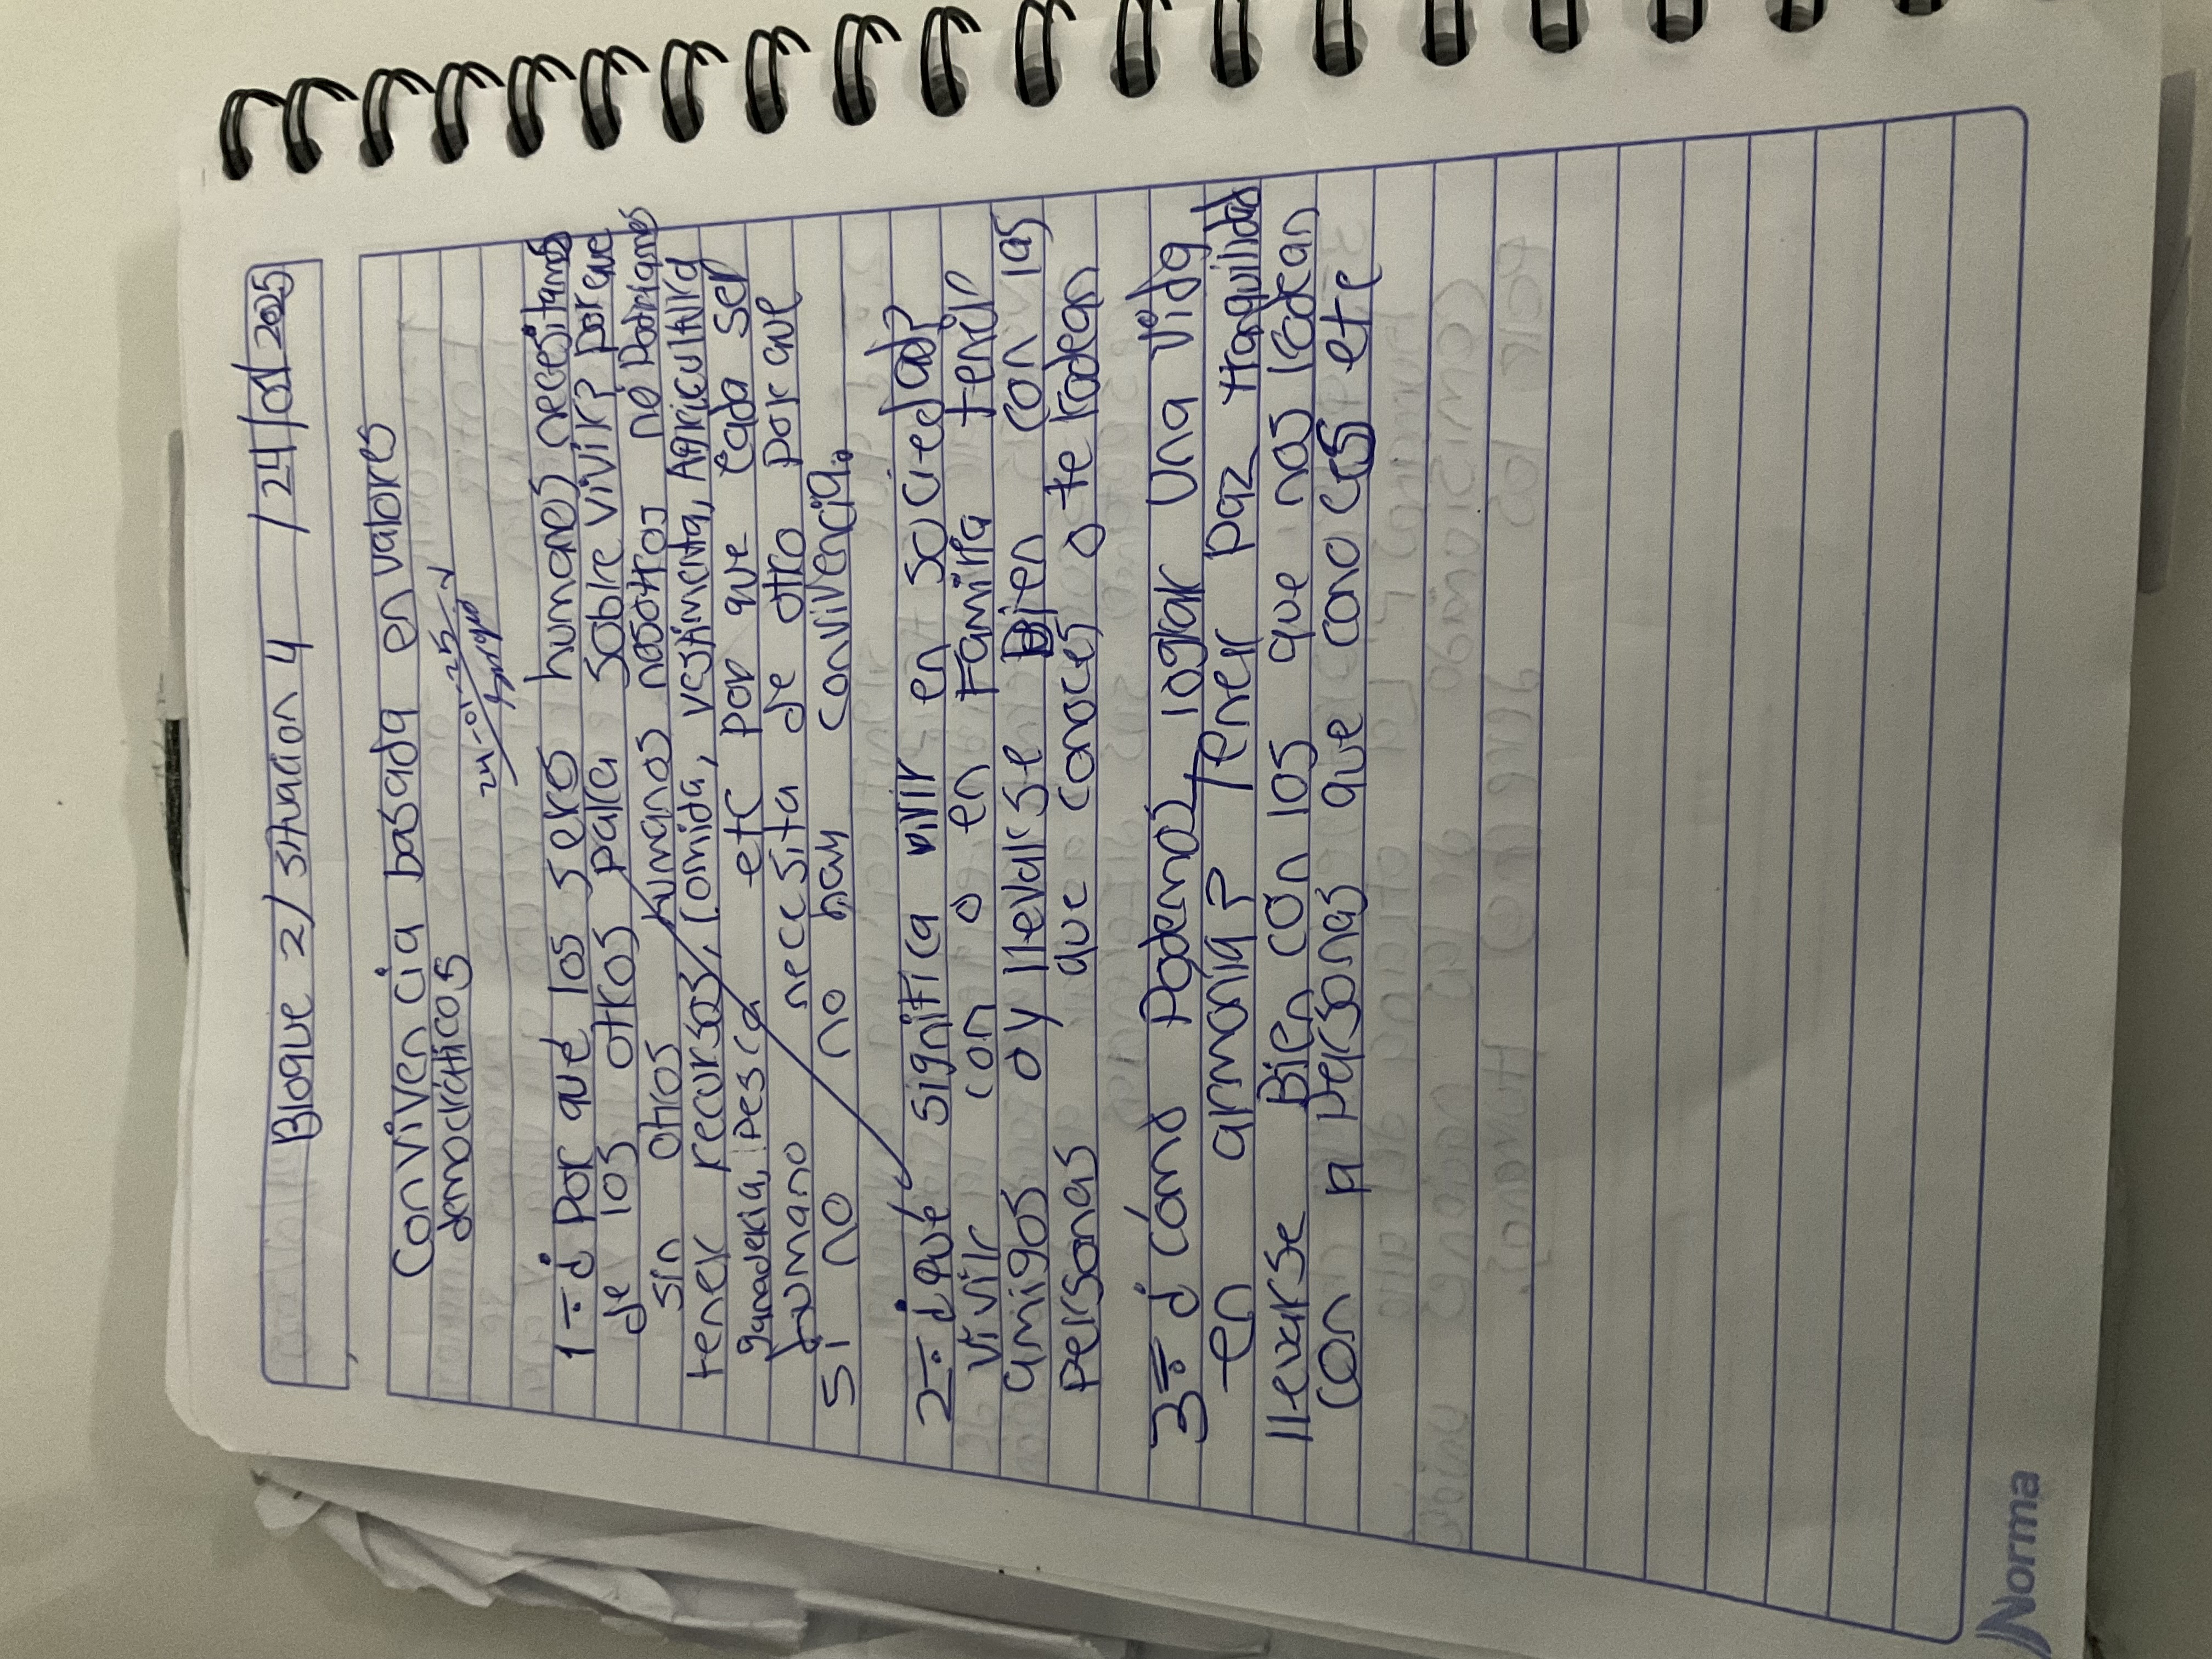 Bloque 2/ situacion 4 /24/01/2025
Convivencia basada en valores
democráticos
24-01-25
1-¿Por qué los seres humanos necesitamos
de los otros para sobre vivir? porque
sin otros humanos nosotros no podriamos
tener recursos, comida, vestimenta, Agricultura
ganaderia, pesca etc por que cada ser
humano necesita de otro por que
si no no hay convivencia.
2-¿Qué significa vivir en sociedad?
vivir con o en Familia tener
amigos o y llevarse Bien con las
personas que conoces o te rodean
3=¿Cómo Podemos lograr una vida
en armonía? Tener paz tranquilidad
llevarse Bien con los que nos rodean
con la personas que cono ces etc
Norma